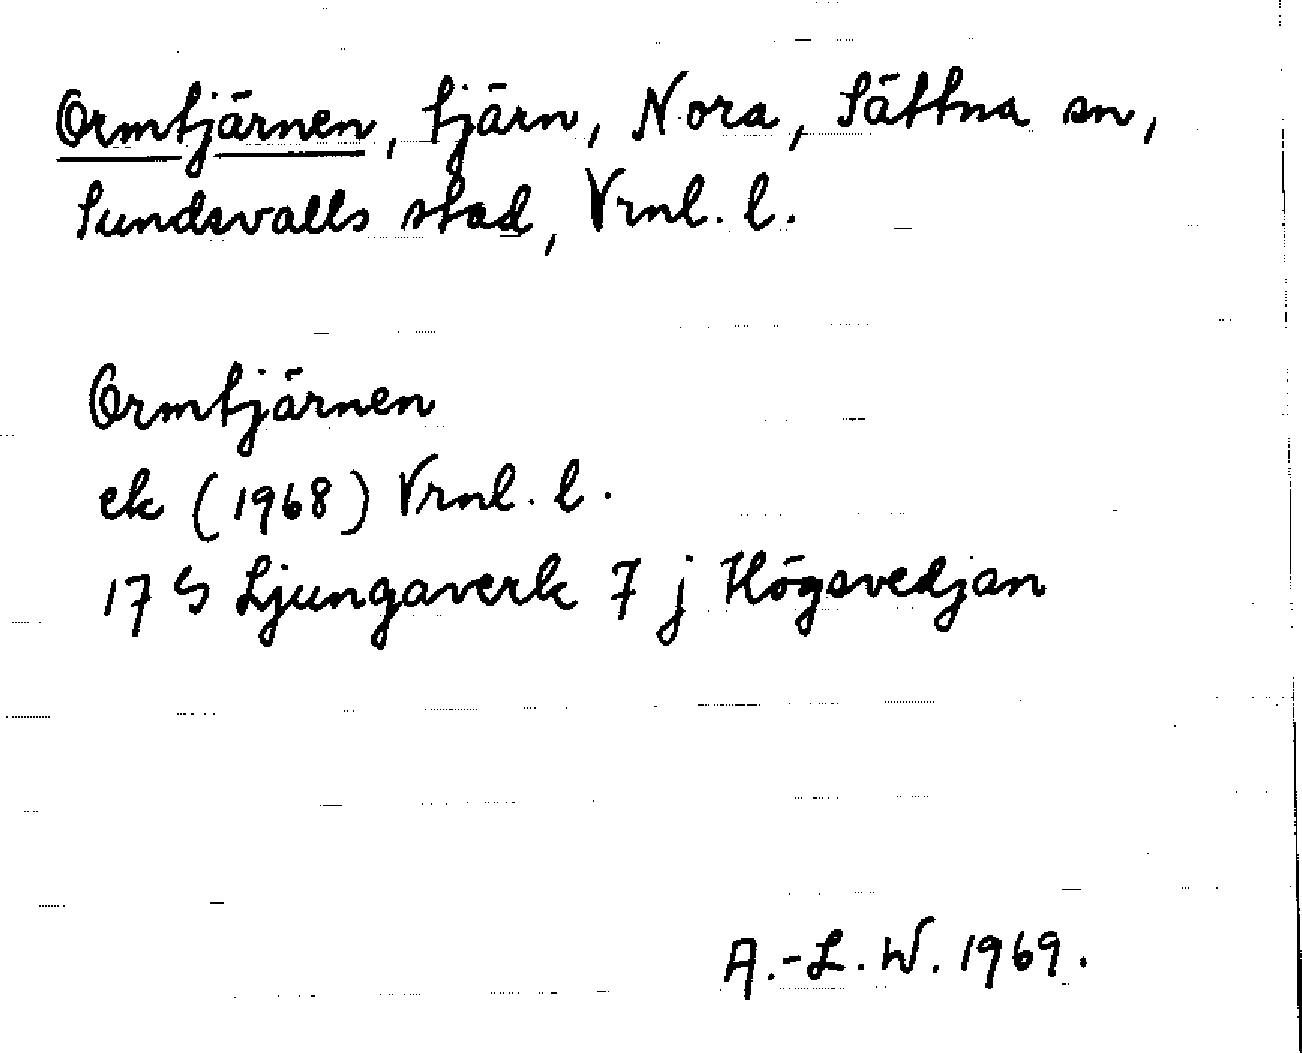 Ormtjärnen, tjärn, Nora, Sättna sn,
Sundsvalls stad, Vrnl. l.
Ormtjärnen
ek (1968) Vrnl. l.
17 G Ljungaverk 7 j Högsvedjan
A.-L. W. 1969.